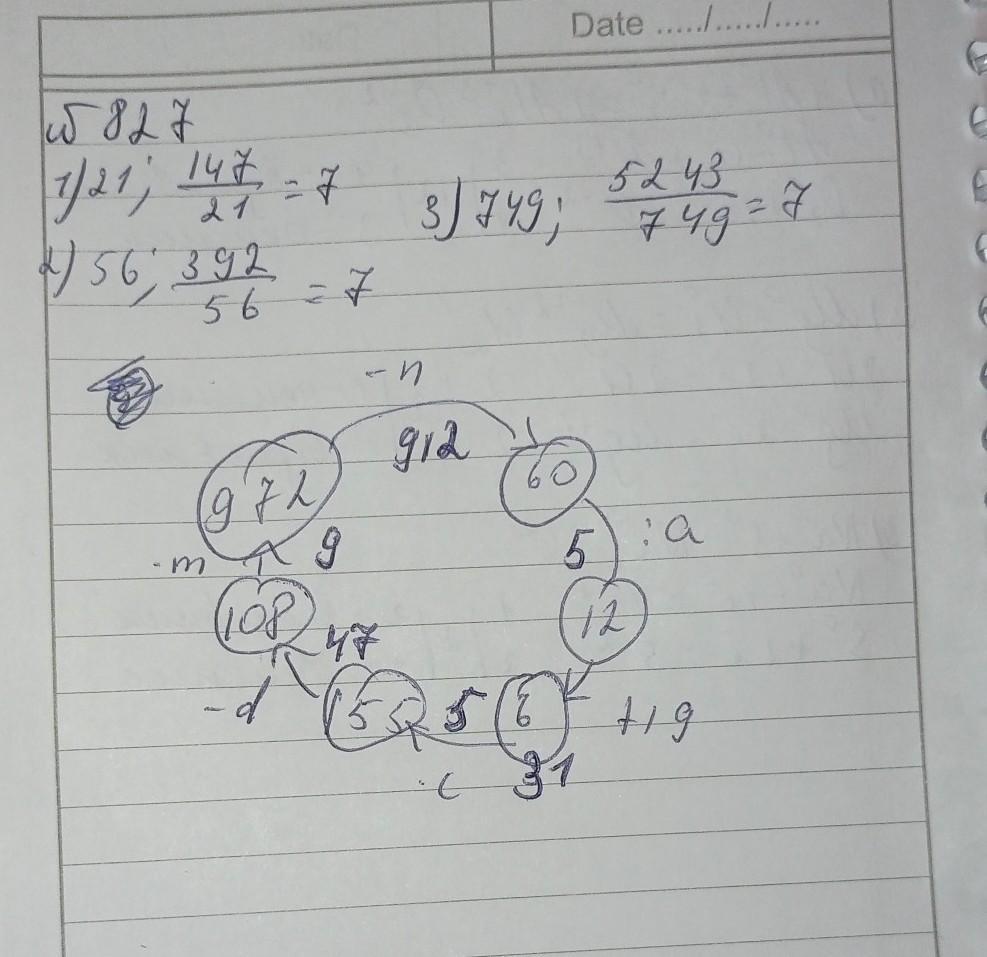 Date ...../...../.....
№ 827
1) 21; 147/21 = 7
3) 749; 5243/749 = 7
2) 56; 392/56 = 7
-n
972 912 60
5 :a
·m 9
108 12
47
-d 155 5 б +19
·c 31